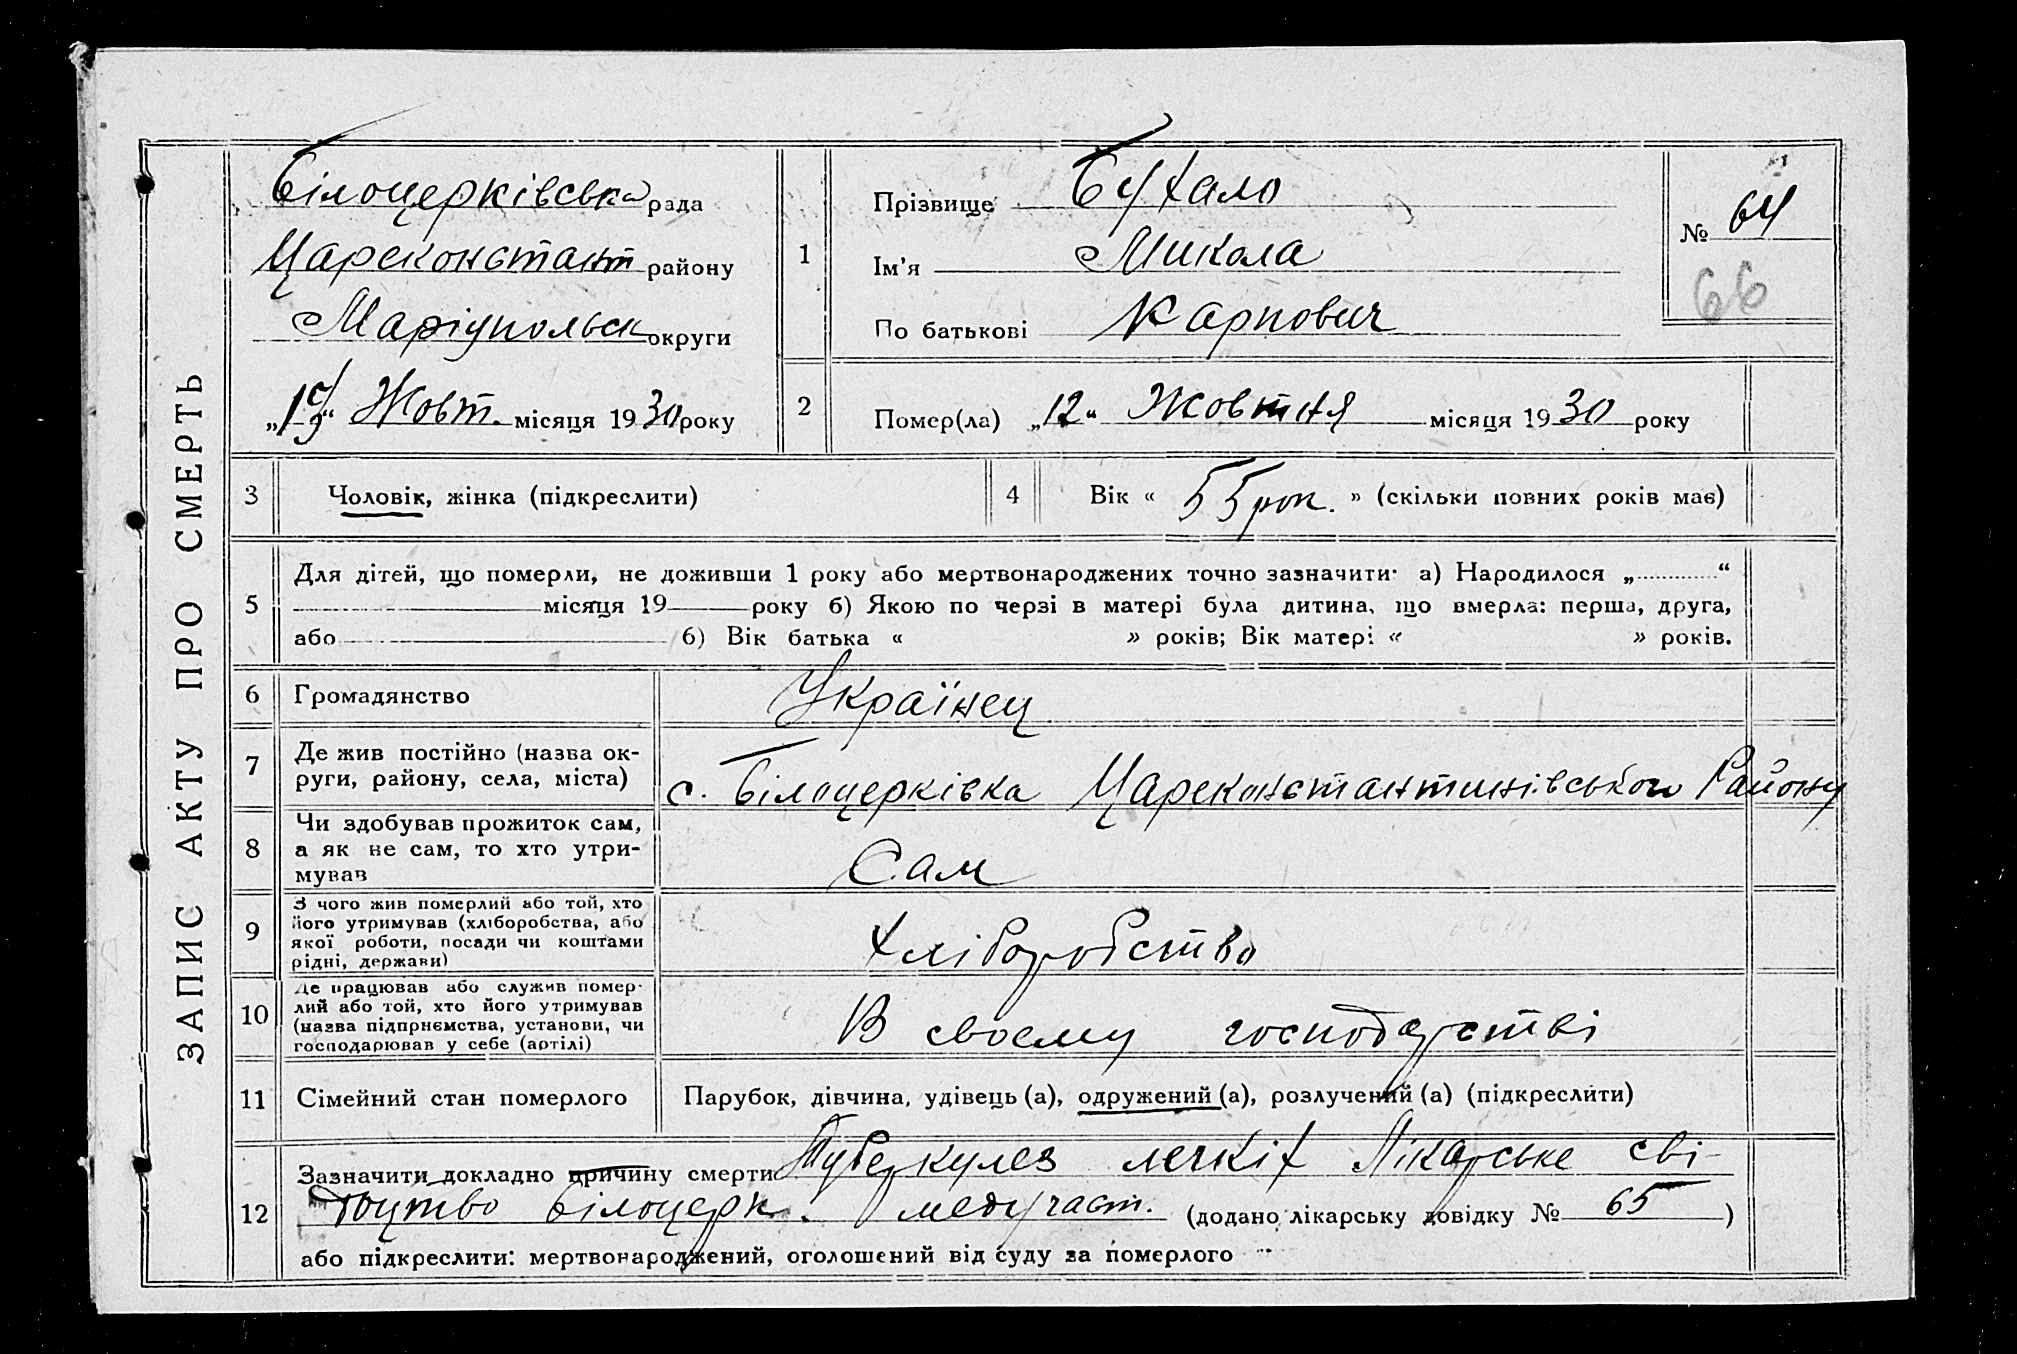 ЗАПИС АКТУ ПРО СМЕРТЬ
Білоцерківська рада
Цареконстант району
Маріупольськ округи
Жовт. місяця 1930 року
1
Прізвище Бухало
Ім'я Микола
По батькові Карпович
№ 64
66
2
Помер(ла) „12“ Жовтня місяця 1930 року
3 Чоловік, жінка (підкреслити)
4 Вік « 55 рок. » (скільки повних років має)
5
Для дітей, що померли, не доживши 1 року або мертвонароджених точно зазначити: а) Народилося „ “
місяця 19 року б) Якою по черзі в матері була дитина, що вмерла: перша, друга,
або б) Вік батька « » років; Вік матері « » років.
6 Громадянство Українец
7 Де жив постійно (назва ок-
руги, району, села, міста)
с. Білоцерківка Цареконстантинівського Району
8 Чи здобував прожиток сам,
а як не сам, то хто утри-
мував
Сам
9 З чого жив померлий або той, хто
його утримував (хліборобства, або
якої роботи, посади чи коштами
рідні, держави)
Хліборобство
10 Де працював або служив помер-
лий або той, хто його утримував
(назва підприємства, установи, чи
господарював у себе (артілі)
В своему господарстві
11 Сімейний стан померлого Парубок, дівчина, удівець (а), одружений (а), розлучений (а) (підкреслити)
12 Зазначити докладно причину смерти Туберкулез легкіх Лікарське сві-
доцтво Білоцерк. медучаст. (додано лікарську довідку № 65 )
або підкреслити: мертвонароджений, оголошений від суду за померлого